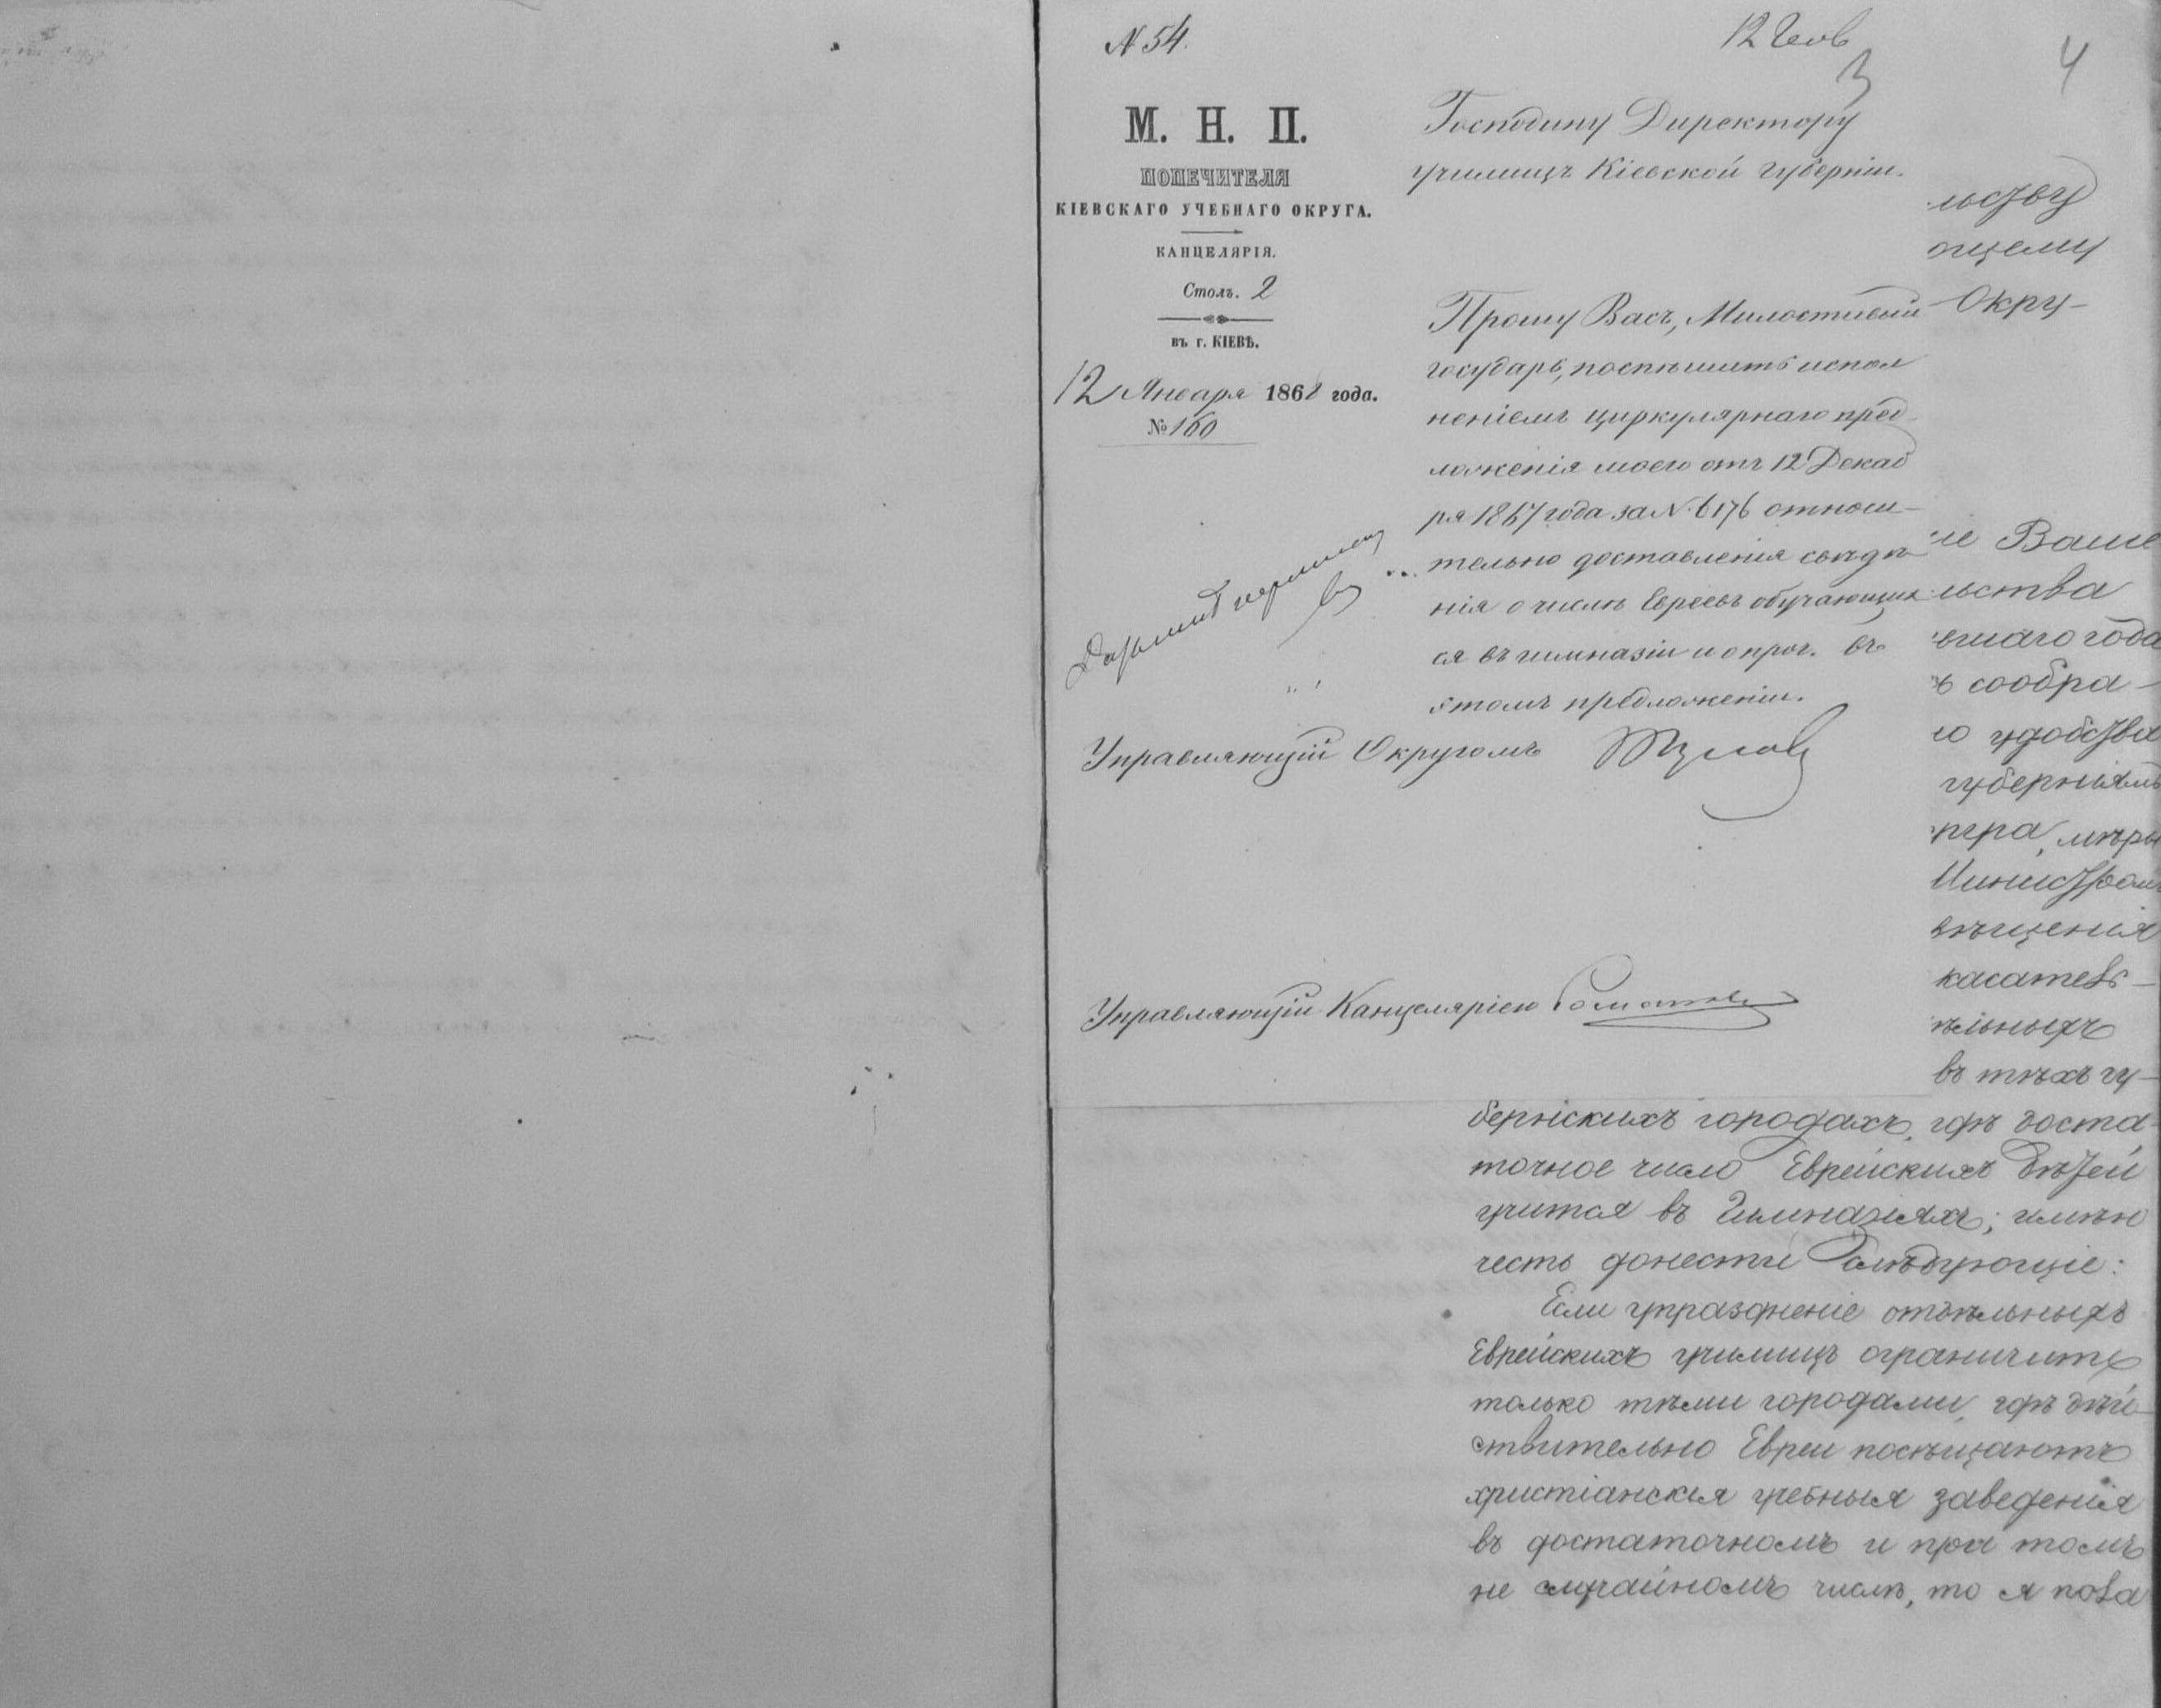 № 54.
12 Генв
3
4
М. Н. П.
ПОПЕЧИТЕЛЯ
КІЕВСКАГО УЧЕБНАГО ОКРУГА.
КАНЦЕЛЯРІЯ.
Столъ. 2
въ г. КІЕВѢ.
12 Января 1868 года.
№ 160
Господину Директору
училищъ Кіевской губерніи.
Прошу Васъ, Милостивый
государь, поспѣшить испол
неніемъ циркулярнаго пред
ложенія моего отъ 12 Декаб
ря 1867 года за № 6176 относи-
тельно доставленія свѣдѣ
нія о числѣ Евреевъ обучающих
ся въ гимназіи и о проч. въ
этомъ предложеніи.
Управляющій Округомъ
Управляющій Канцеляріею
льству
ощему
Окру-
іе Ваше
льства
вшаго года
ъ сообра-
ю удобства
губерніямъ
нтра, мѣры
Министром
вѣщенія
касатель-
ѣльныхъ
въ тѣхъ гу-
бернскихъ городахъ, гдѣ доста-
точное число Еврейскихъ дѣтей
учится въ Гимназіяхъ; имѣю
честь донести слѣдующіе:
Если упраздненіе отдѣльныхъ
Еврейскихъ училищъ ограничить
только тѣми городами, гдѣ дѣй-
ствительно Евреи посѣщаютъ
христіанскія учебныя заведенія
въ достаточномъ и при томъ
не случайномъ числѣ, то я пола